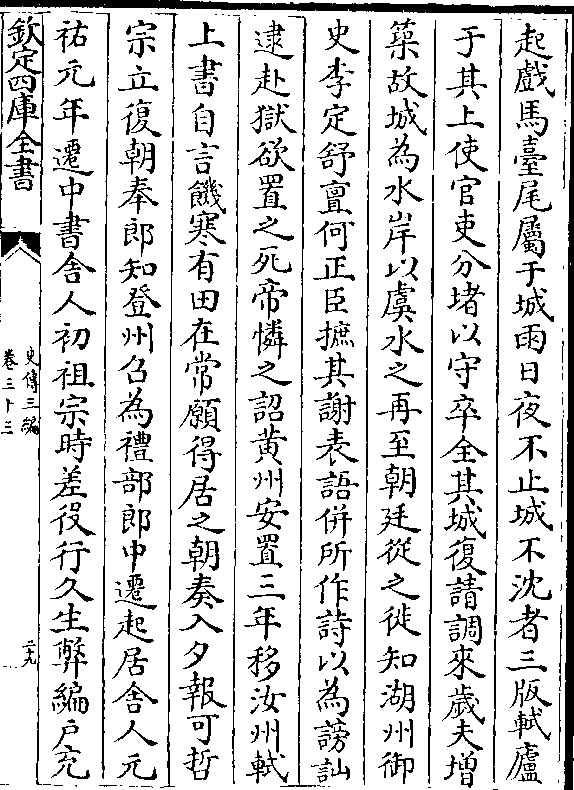 起戲馬臺尾屬于城雨日夜不止城不沈者三版軾廬
于其上使官吏分堵以守卒全其城復請調來歲夫增
築故城為水岸以虞水之再至朝廷從之徙知湖州御
史李定舒亶何正臣摭其謝表語併所作詩以為謗訕
逮赴獄欲置之死帝憐之詔黄州安置三年移汝州軾
上書自言饑寒有田在常願得居之朝奏入夕報可哲
宗立復朝奉郎知登州召為禮部郎中遷起居舍人元
祐元年遷中書舍人初祖宗時差役行久生弊編户充
欽定四庫全書
史傳三編
卷三十三
二九